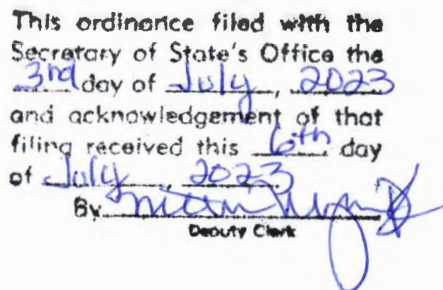 This ordinance filed with the
Secretary of State's Office the
3rd day of July, 2023
and acknowledgement of that
filing received this 6th day
of July, 2023
By
Deputy Clerk